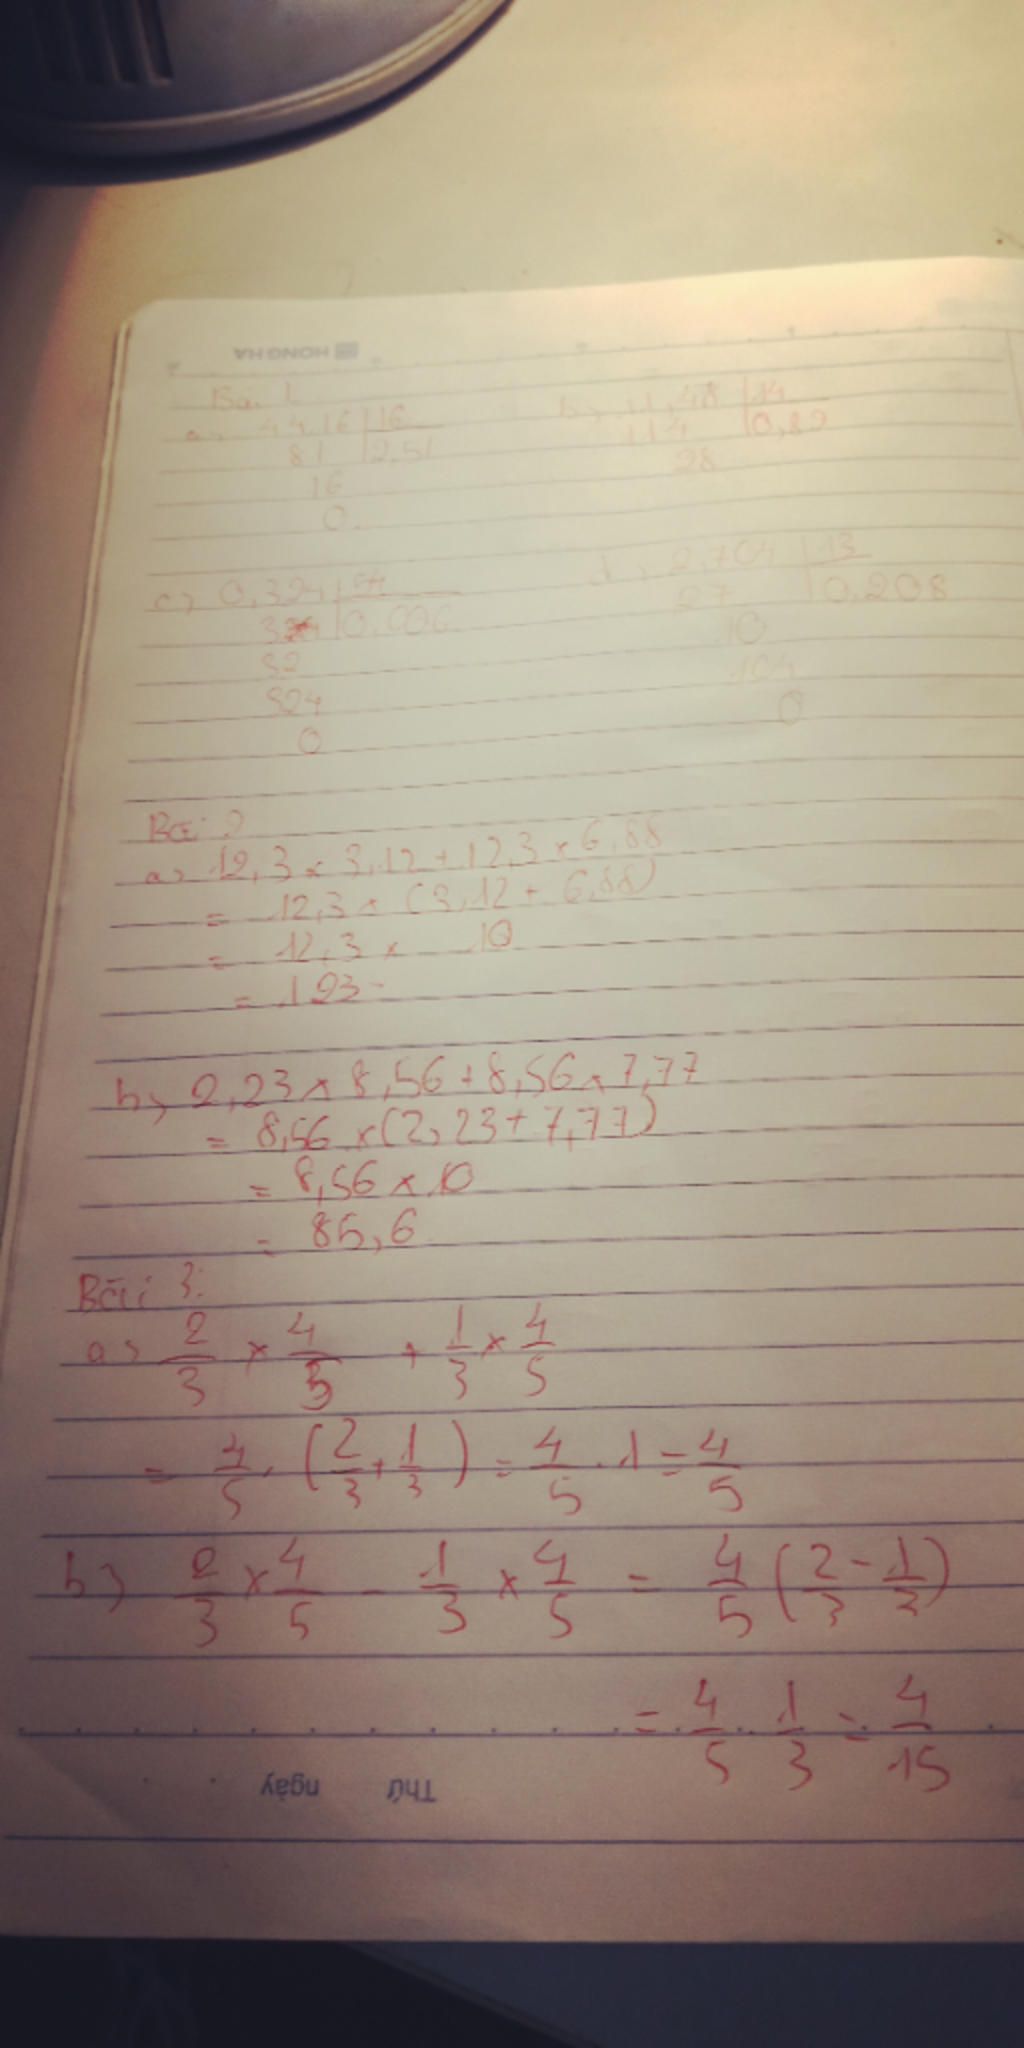 HONG HA
Bài 1
a, 44,16 | 16 b, 11,48 | 14
81 | 2,51 114 | 0,82
16 28
0
c, 0,324 | 54 d, 2,704 | 13
32 | 0,006 27 | 0,208
32 10
324 104
0 0
Bài 2
a, 12,3 × 3,12 + 12,3 × 6,88
= 12,3 × (3,12 + 6,88)
= 12,3 × 10
= 123
b, 2,23 × 8,56 + 8,56 × 7,77
= 8,56 × (2,23 + 7,77)
= 8,56 × 10
= 85,6
Bài 3:
a, 2/3 × 4/5 + 1/3 × 4/5
= 4/5 . (2/3 + 1/3) = 4/5 . 1 = 4/5
b, 2/3 × 4/5 - 1/3 × 4/5 = 4/5 (2/3 - 1/3)
= 4/5 . 1/3 = 4/15
Thứ ngày